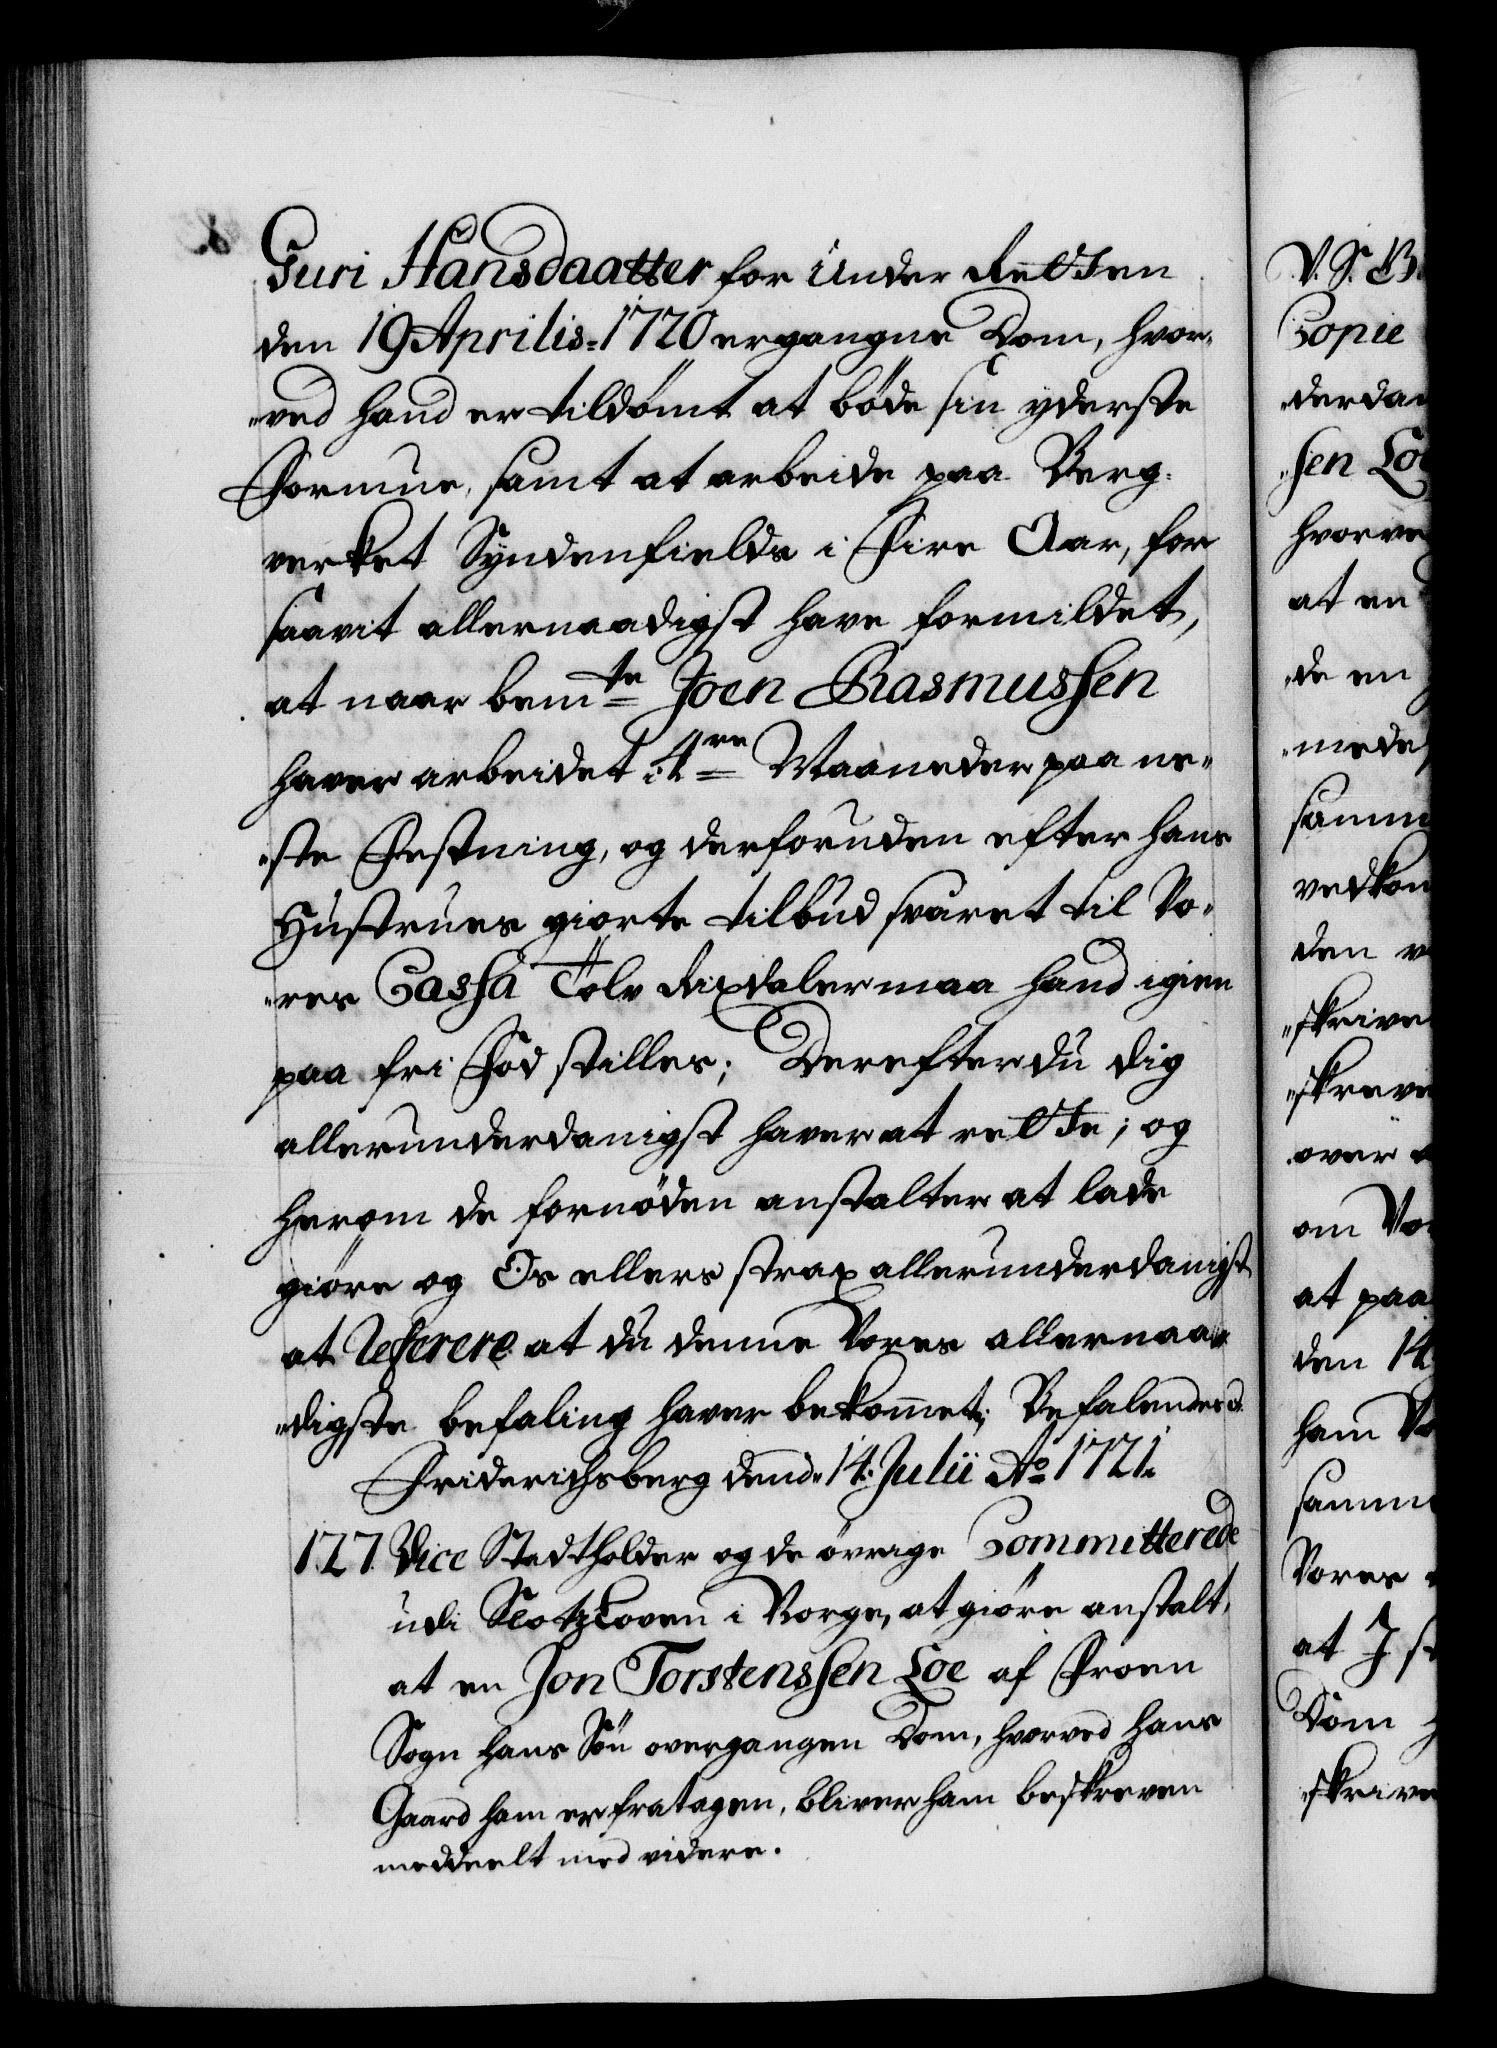 Guri Hansdaatter for Under Retten
den 19 Aprilis 1720 ergangne Dom, hvor-
„ved hand er tildömt at böde sin yderste
Formue, samt at arbeide paa Berg-
verket Syndenfields i Fire Aar, for
saavit allernaadigst have formildet,
at naar bemte Joen Rasmussen
haver arbeidet Maaneder paa ne-
„ste Festning, og derforuden efter hans
Hustrues giorte tilbud svaret til Vo-
„res Cassa Tolv Rixdaler maa hand igien
paa fri Fod stilles; Derefter du dig
allerunderdanigst haver at rette; og
herom de fornöden anstalter at lade
giöre og Os ellers strax allerunderdanigst
at Referere at du denne Vores allernaa-
„digste befaling haver bekommet; Befalendes
Friderichsberg dend 14 Julii Ao 1721.
127. Vice Stadtholder og de övrige Committerede
udi Slotzloven i Norge, at giöre anstalt,
at en Jon Torstenssen Loe af Froen
Sogn hans Sön overgangen Dom, hvorved hans
Gaard ham er fratagen, bliver ham beskreven
meddeelt med videre.
V. S. B.
Copie
„derdan
„sen Loe
hvorve
at en
„de en
„medes
samm
vedkom
den
„skrive
„skreve
over
om Vo
at paa
den 14
ham Vo
samme
Vores
at I
Dom
„skrive